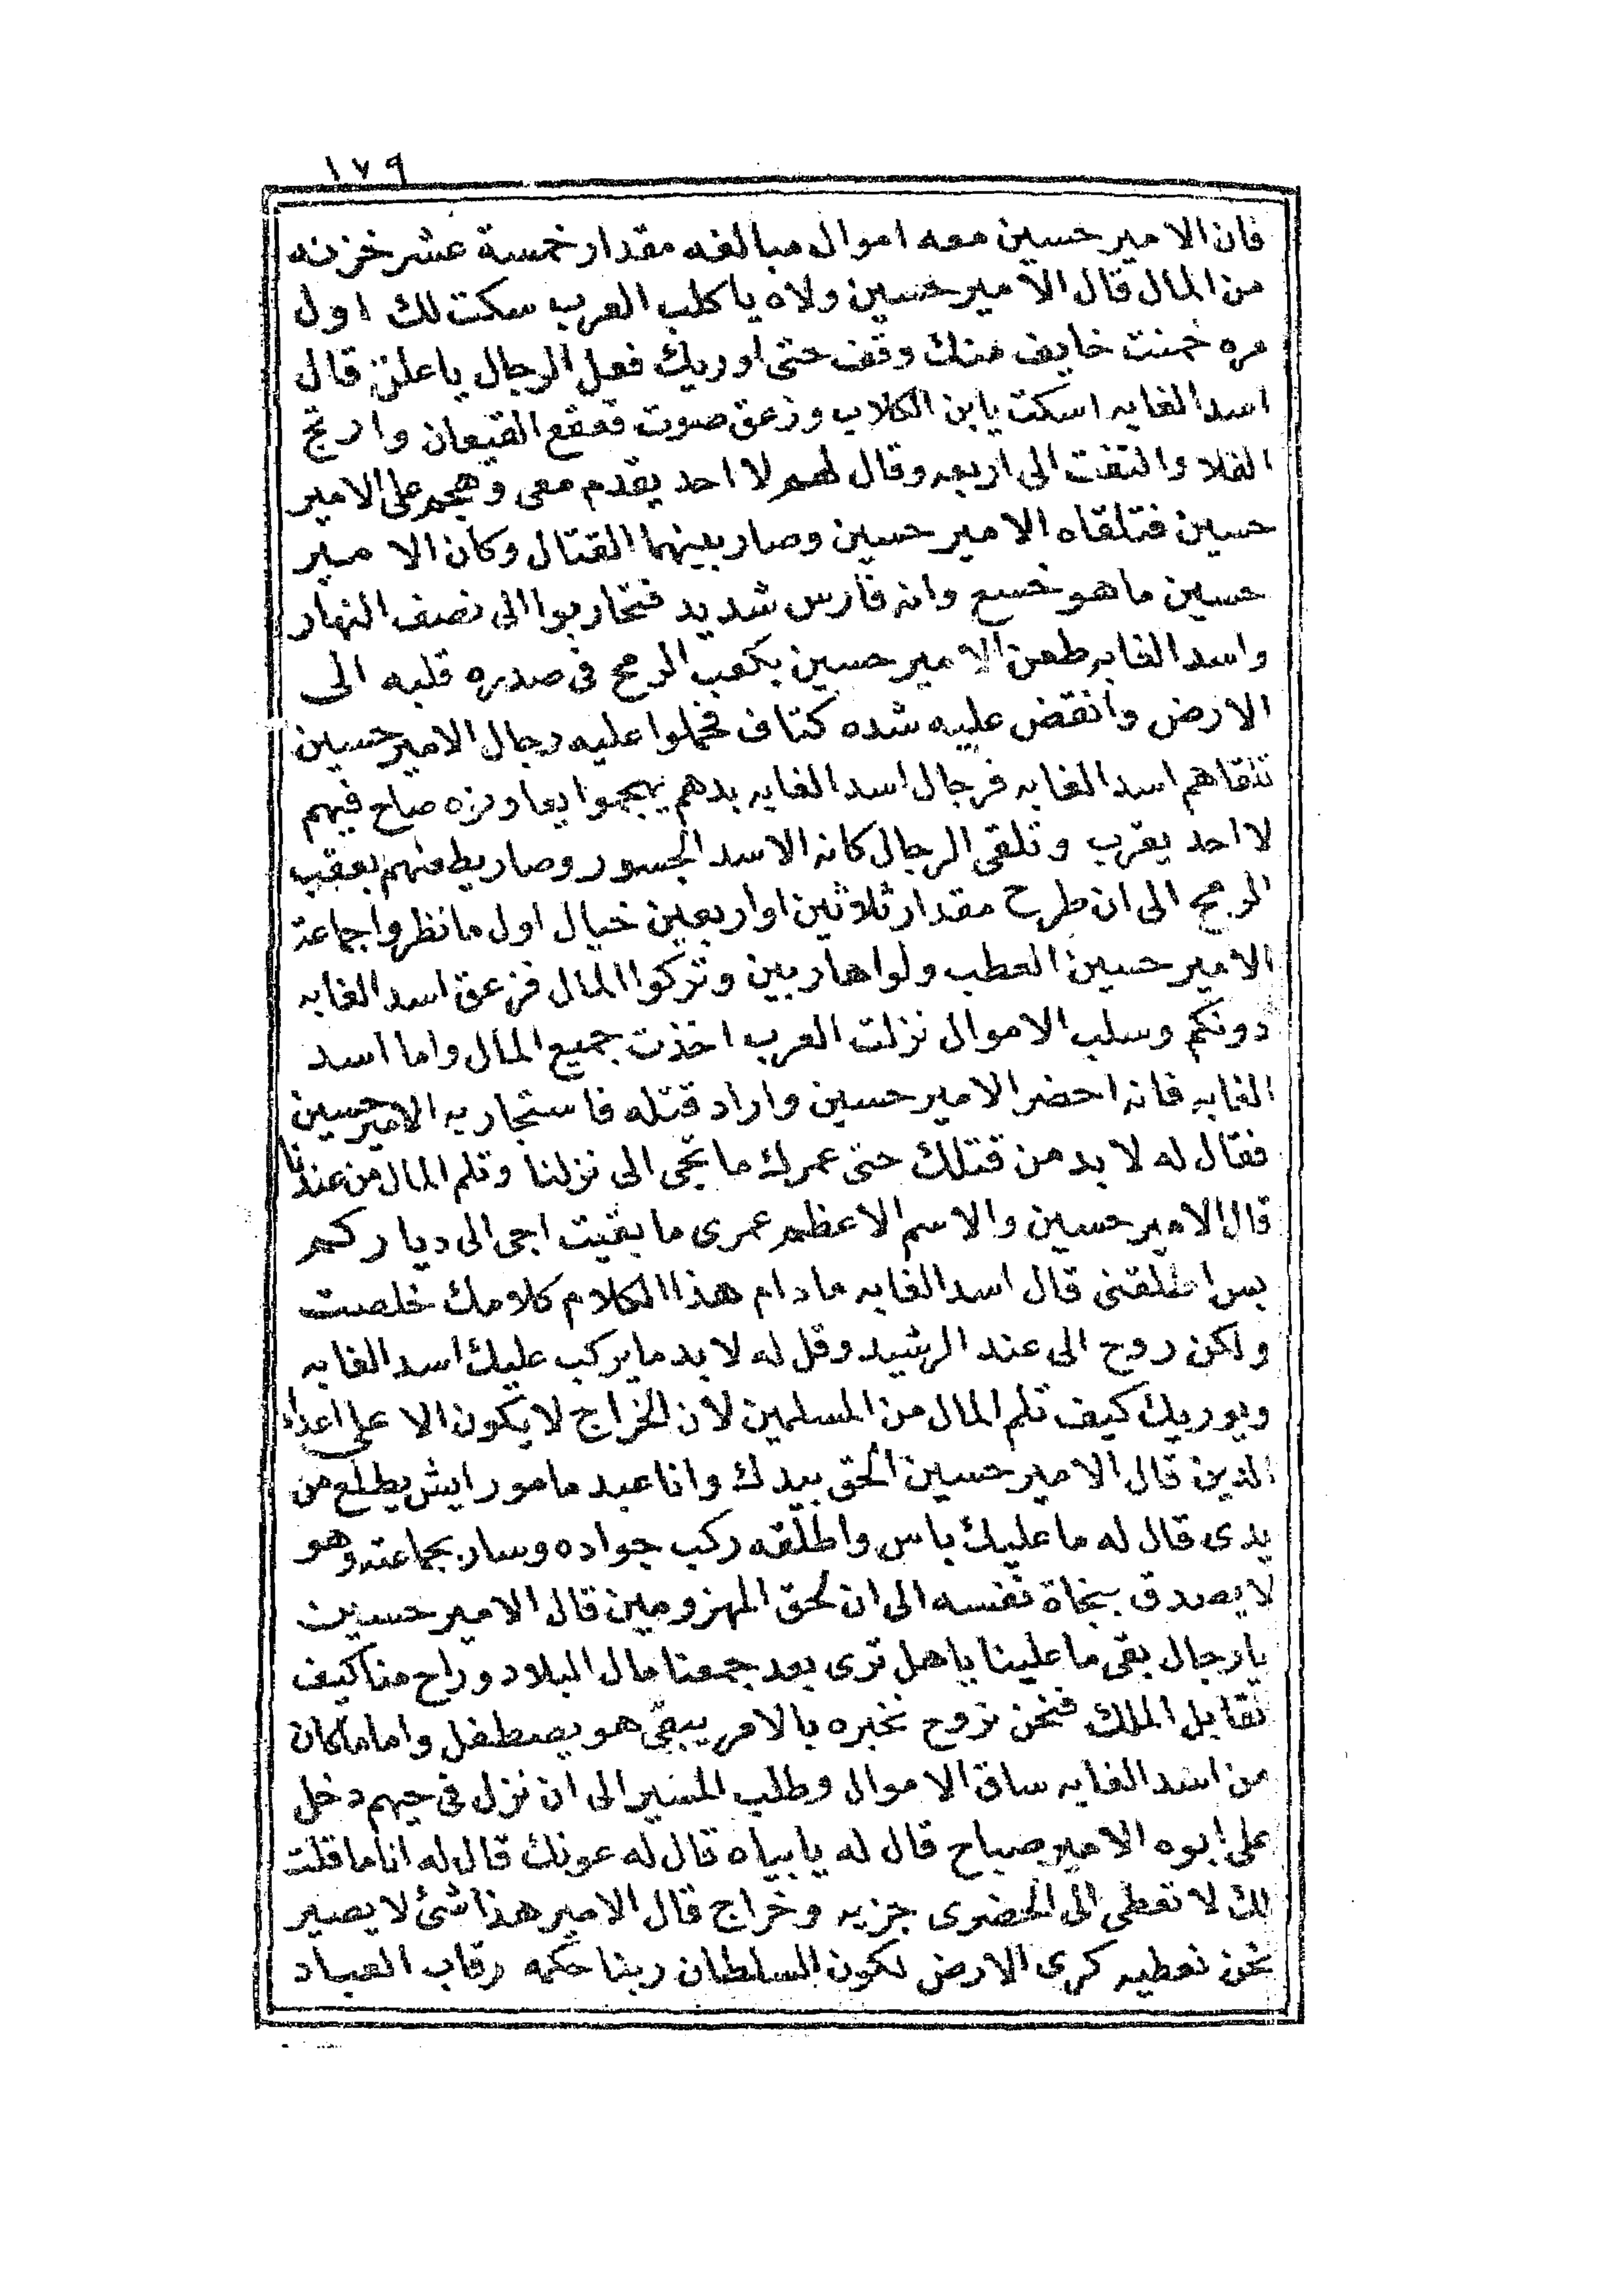 ١٧٩
فان الامير حسين معه اموال مبالغه مقدار خمسة عشر خزنه
من المال قال الامير حسين ولاه يا كلب العرب سكت لك اول
مره خمنت خايف منك وقف حتى اوريك فعل الرجال يا علق قال
اسد الغابه اسكت يا ابن الكلاب وزعق صوت قعقع القيعان وارتج
الفلا والتفت الى اربعه وقال لهم لا احد يقدم معى وهجم على الامير
حسين فتلقاه الامير حسين وصار بينهما القتال وكان الامير
حسين ما هو خسع وانه فارس شديد فتحاربوا الى نصف النهار
واسد الغابه طعن الامير حسين بكعب الرمح فى صدره قلبه الى
الارض وانقض عليه شده كتاف فحملوا عليه رجال الامير حسين
تلقاهم اسد الغابه فرجال اسد الغابه بدهم يهجموا يعاونزه صاح فيهم
لا احد يقرب وتلقى الرجال كانه الاسد الجسور وصار يطعنهم بعقب
الرمح الى ان طرح مقدار ثلاثين او اربعين خيال اول ما نظروا جماعة
الامير حسين العطب ولوا هاربين وتركوا المال فزعق اسد الغابه
دونكم وسلب الاموال نزلت العرب اخذت جميع المال واما اسد
الغابه فانه احضر الامير حسين واراد قتله فاستجار به الامير حسين
فقال له لا بد من قتلك حتى عمرك ما تجى الى نزلنا وتلم المال من عندنا
قال الامير حسين والاسم الاعظم عمرى ما بقيت اجى الى دياركم
بس اطلقنى قال اسد الغابه ما دام هذا الكلام كلامك خلصت
ولكن روح الى عند الرشيد وقل له لا بد ما يركب عليك اسد الغابه
ويوريك كيف تلم المال من المسلمين لان الخراج لا يكون الا على اعداء
الدين قال الامير حسين الحق بيدك وانا عبد مامور ايش يطلع من
يدى قال له ما عليك باس واطلقه ركب جواده وسار بجماعته وهو
لا يصدق بنجاة نفسه الى ان لحق المهزومين قال الامير حسين
يا رجال بقى ما علينا يا هل ترى بعد جمعنا مال البلاد وراح منا كيف
نقابل الملك فنحن نروح نخبره بالامر يبقى هو يصطفل واما ما كان
من اسد الغابه ساق الاموال وطلب المسير الى ان نزل فى حيهم دخل
على ابوه الامير صباح قال له يا بياه قال له عونك قال له انا ما قلت
لك لا تعطى الى الحضرى جزيه وخراج قال الامير هذا شئ لا يصير
نحن نعطيه كرى الارض لكون السلطان ربنا حكمه رقاب العباد